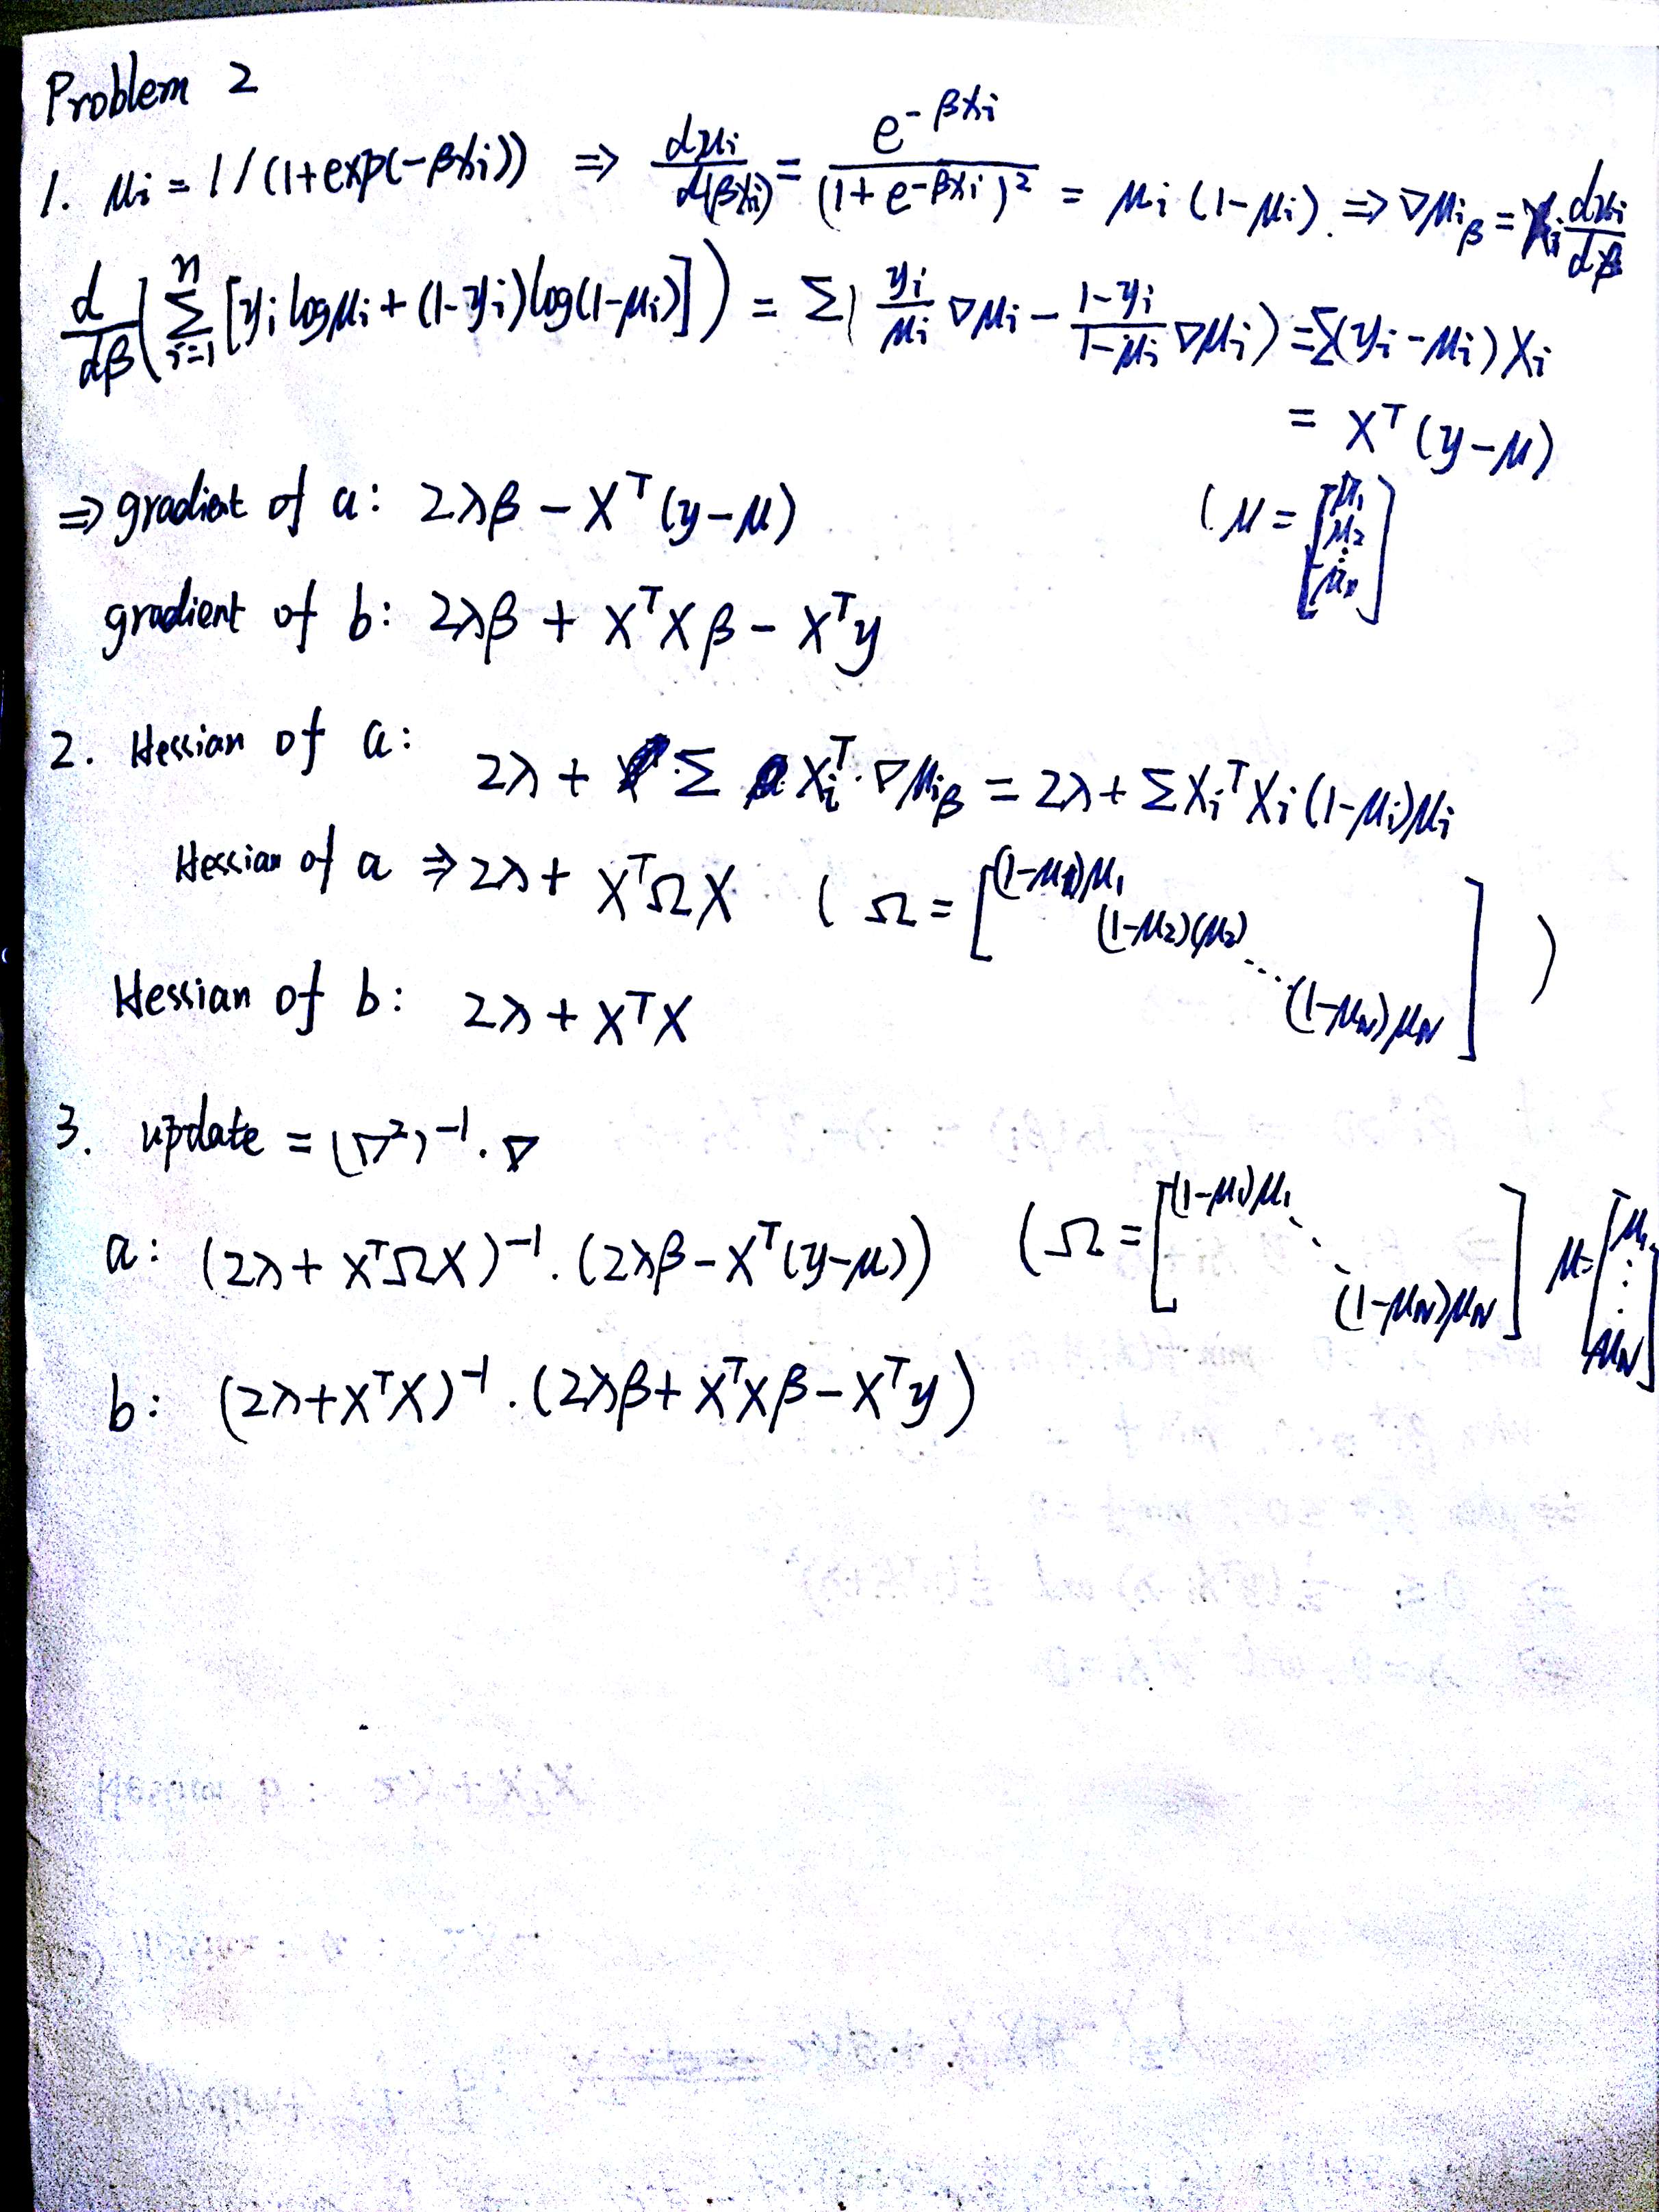 Problem 2
1. μi = 1/(1+exp(-βxi)) ⇒ dμi/d(βxi) = e^-βxi/(1+e^-βxi)^2 = μi(1-μi). ⇒ ∇μiβ = Xi dμi/dβ
d/dβ(Σ_{i=1}^n [yi logμi + (1-yi)log(1-μi)]) = Σ( yi/μi ∇μi - (1-yi)/(1-μi) ∇μi) = Σ(yi-μi)Xi
= X^T(y-μ)
⇒ gradient of a: 2λβ - X^T(y-μ) (μ = [μ1 μ2 ⋮ μn]
gradient of b: 2λβ + X^TXβ - X^Ty
2. Hessian of a: 2λ + Σ Xi^T·∇μiβ = 2λ + ΣXi^TXi(1-μi)μi
Hessian of a ⇒ 2λ + X^TΩX (Ω = [(1-μ1)μ1 (1-μ2)(μ2) ⋱ (1-μN)μN])
Hessian of b: 2λ + X^TX
3. update = (∇^2)^-1·∇
a: (2λ + X^TΩX)^-1·(2λβ - X^T(y-μ)) (Ω = [(1-μ1)μ1 ⋱ (1-μN)μN] μ=[μ1 ⋮ μN]
b: (2λ+X^TX)^-1·(2λβ + X^TXβ - X^Ty)